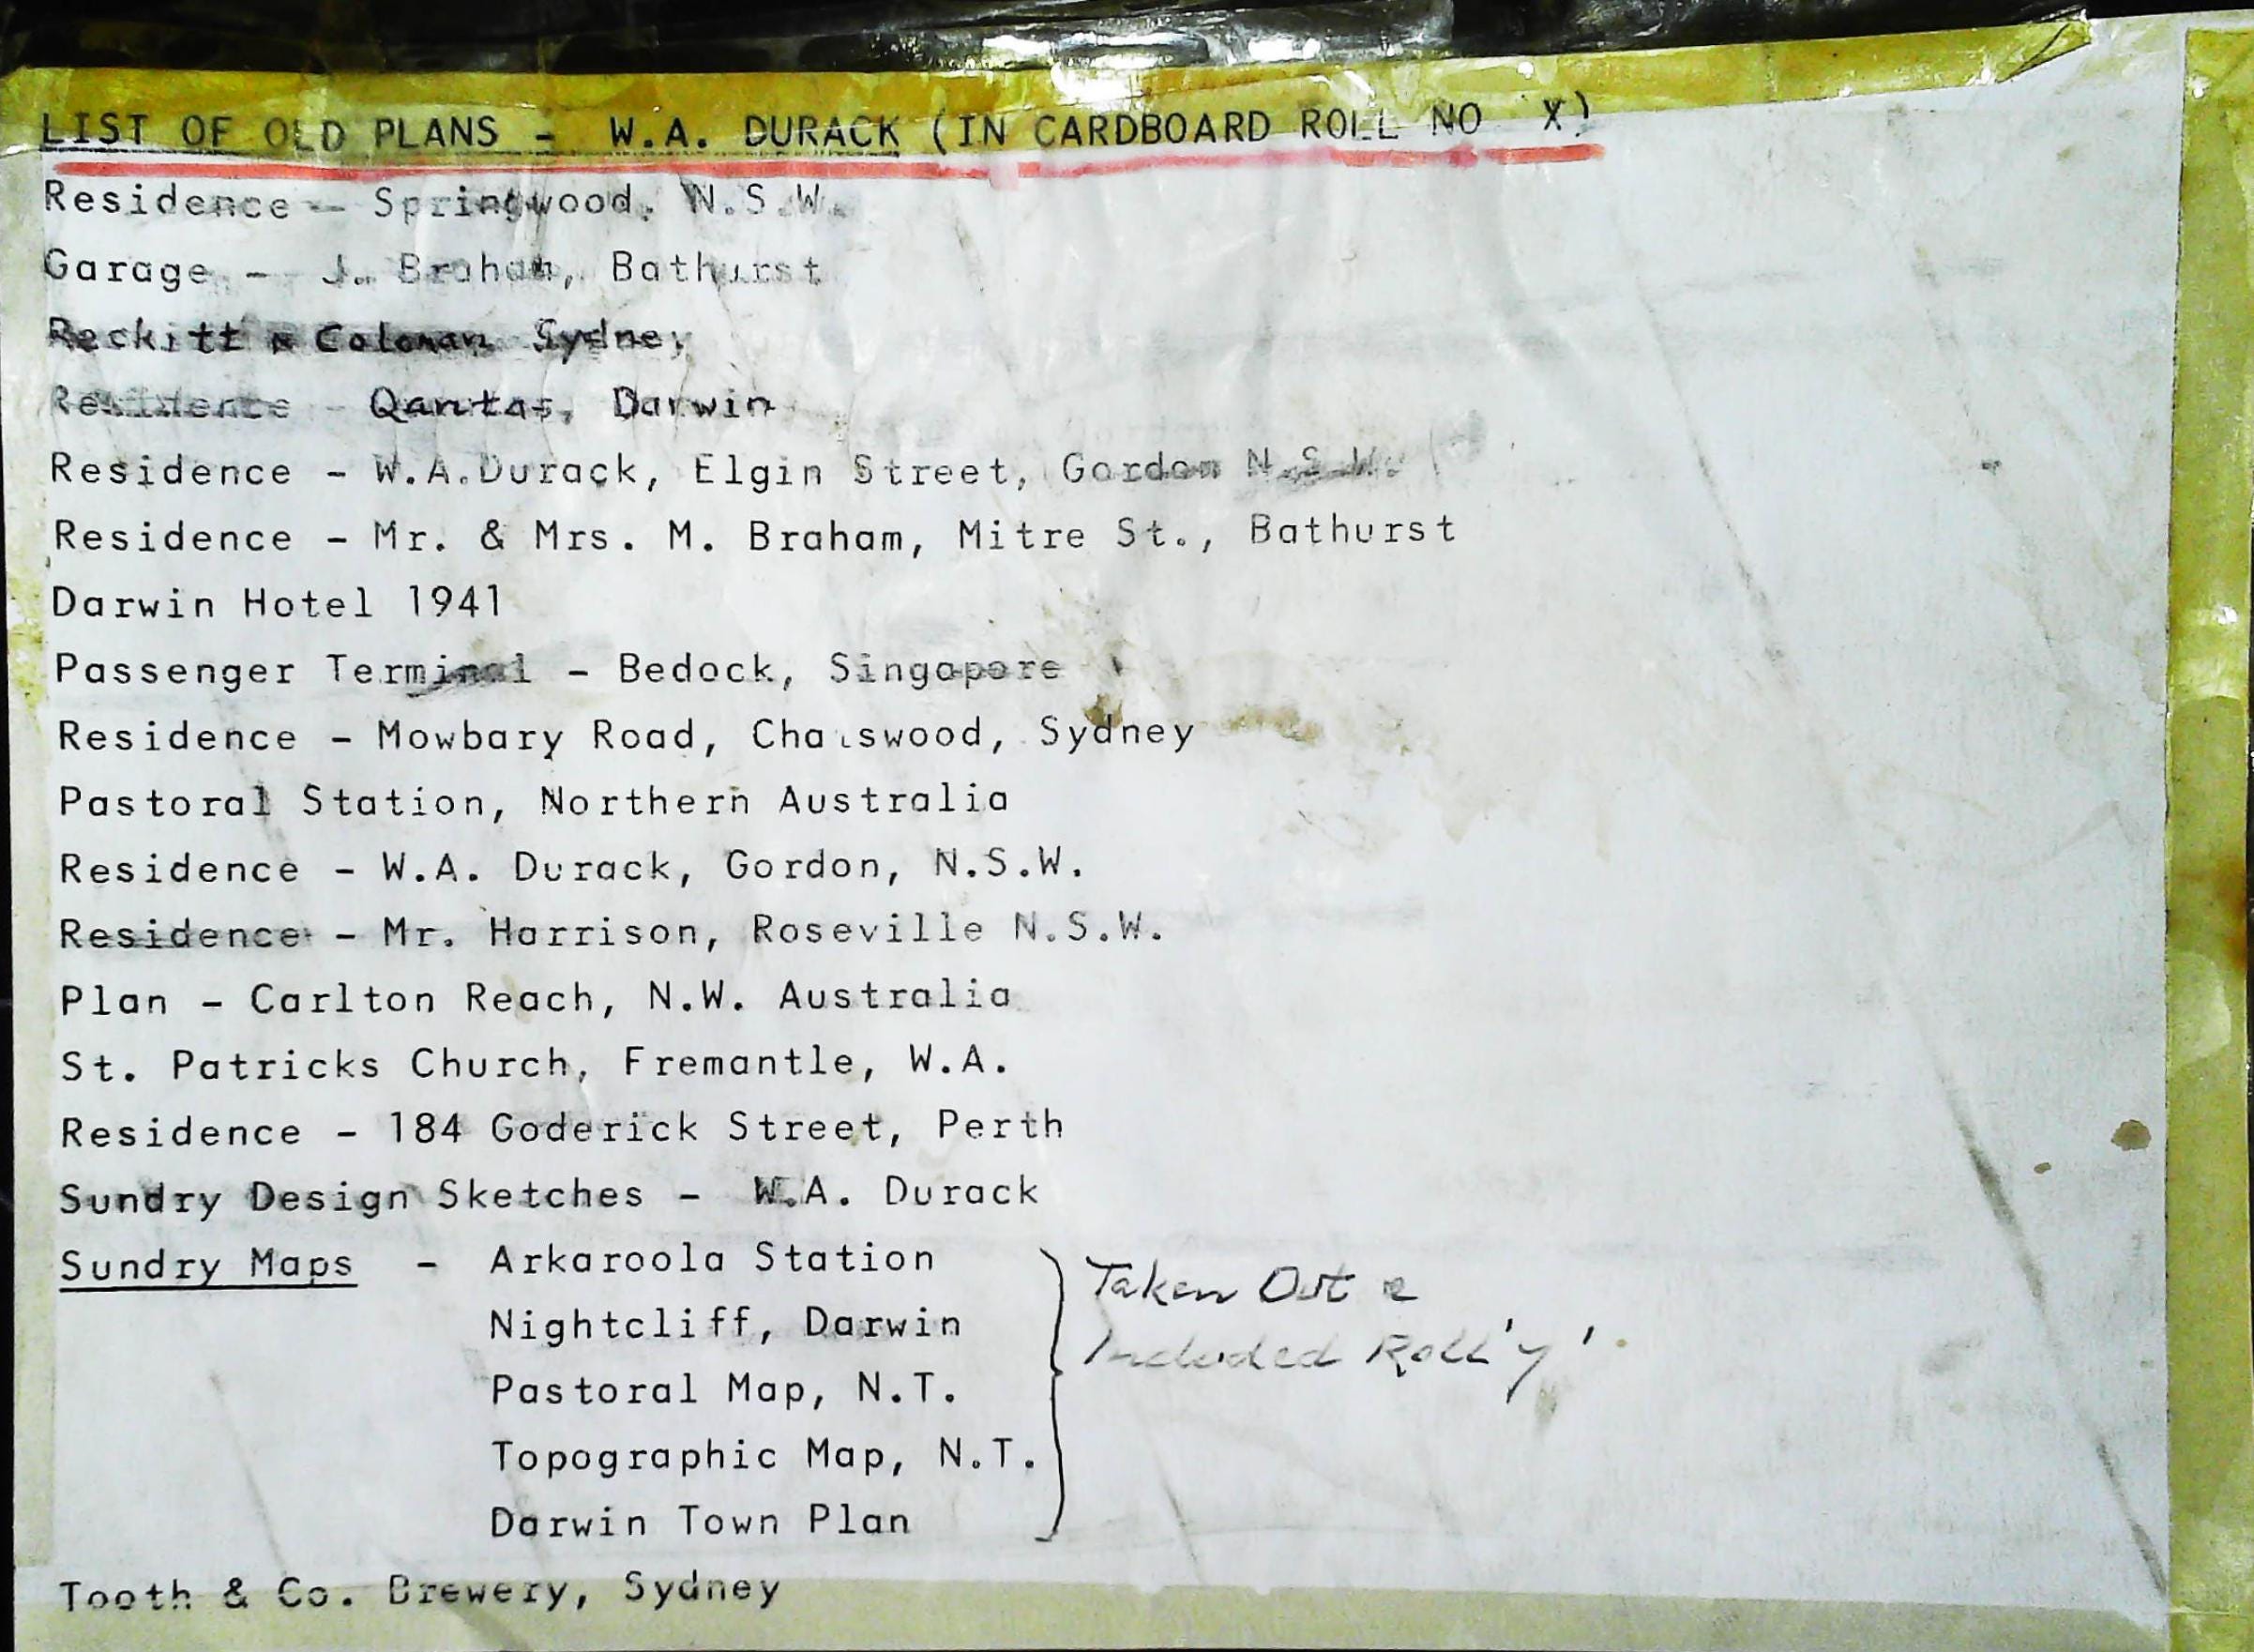 LIST OF OLD PLANS - W.A. DURACK (IN CARDBOARD ROLL NO X)
Residence - Springwood, N.S.W.
Garage - J. Braham, Bathurst
Reckitt & Colman Sydney
Residence - Qantas, Darwin
Residence - W.A.Durack, Elgin Street, Gordon N.S.W.
Residence - Mr. & Mrs. M. Braham, Mitre St., Bathurst
Darwin Hotel 1941
Passenger Terminal - Bedock, Singapore
Residence - Mowbary Road, Chatswood, Sydney
Pastoral Station, Northern Australia
Residence - W.A. Durack, Gordon, N.S.W.
Residence - Mr. Harrison, Roseville N.S.W.
Plan - Carlton Reach, N.W. Australia
St. Patricks Church, Fremantle, W.A.
Residence - 184 Goderick Street, Perth
Sundry Design Sketches - W.A. Durack
Sundry Maps - Arkaroola Station
Nightcliff, Darwin
Pastoral Map, N.T.
Topographic Map, N.T.
Darwin Town Plan
Taken Out &
Included Roll 'y'
Tooth & Co. Brewery, Sydney